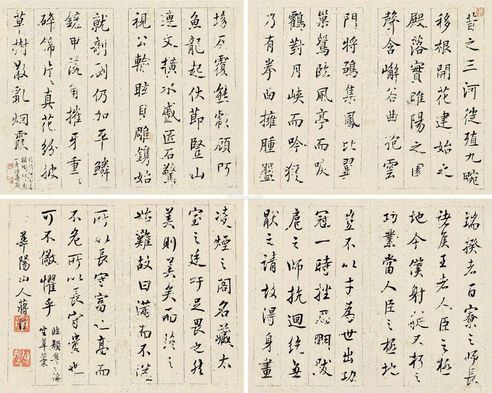 昔之三河徙植九畹
移根開花建始之
殿落實睢陽之園
聲含嶰谷曲抱雲
門將雛集鳳比翼
巢鴛臨風亭而唳
鶴對月峽而吟猿
乃有拳曲擁腫盤
坳反覆熊彪顧盼
魚龍起伏節豎山
連文橫水蹙匠石驚
視公輸眩目雕鐫始
就剞劂仍加平鱗
鏟甲落角摧牙重〻
碎錦片〻真花紛披
草樹散亂烟霞
端揆者百寮之師長
諸侯王者人臣之極
地今僕射挺不朽之
功業當人臣之極地
豈不以才為世出功
冠一時挫思明跋
扈之師抗迴紇無
厭之請故得身畫
凌煙之閣名藏太
室之廷吁足畏也然
美則美矣而終之
始難故曰滿而不溢
所以長守富也高而
不危所以長守貴也
可不儆懼乎
臨顏魯公
坐草藁
華陽山人蔣